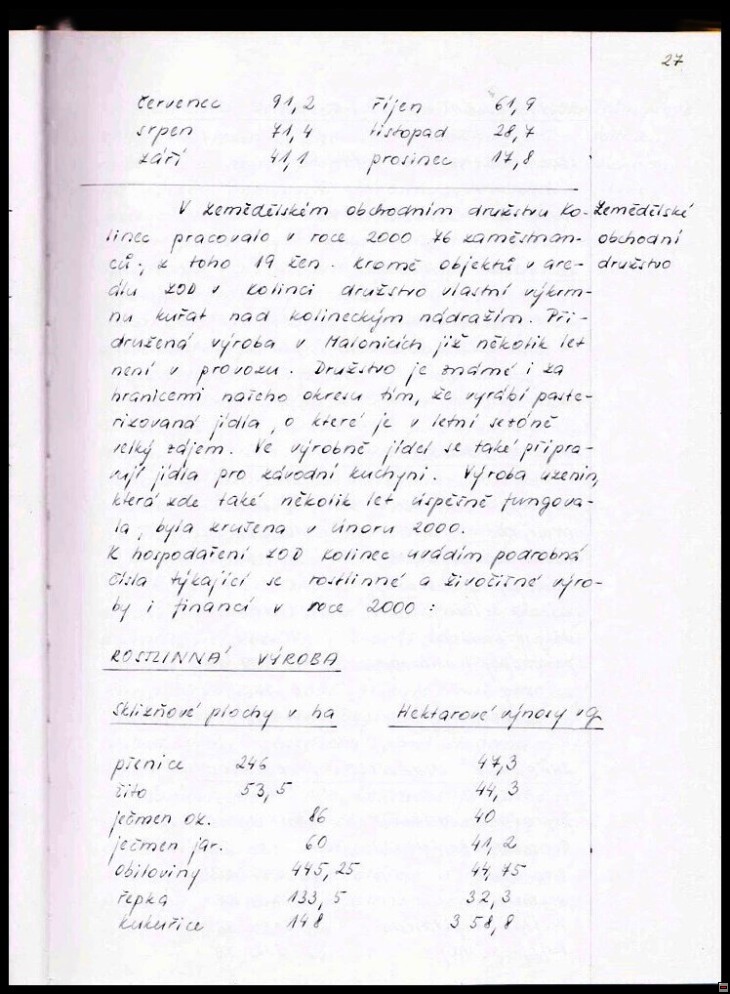 27
červenec 91,2 říjen 61,9
srpen 71,4 listopad 28,7
září 41,1 prosinec 17,8
V Zemědělském obchodním družstvu Ko-
linec pracovalo v roce 2000 76 zaměstnan-
ců, z toho 19 žen. Kromě objektů v are-
álu ZOD v Kolinci družstvo vlastní výkrm-
nu kuřat nad kolineckým nádražím. Při-
družená výroba v Malonicích již několik let
není v provozu. Družstvo je známé i za
hranicemi našeho okresu tím, že vyrábí paste-
rizovaná jídla, o které je v letní sezóně
velký zájem. Ve výrobně jídel se také připra-
vují jídla pro závodní kuchyni. Výroba uzenin,
která zde také několik let úspěšně fungova-
la, byla zrušena v únoru 2000.
K hospodaření ZOD Kolinec uvádím podrobná
čísla týkající se rostlinné a živočišné výro-
by i financí v roce 2000:
Zemědělské
obchodní
družstvo
ROSTLINNÁ VÝROBA
Sklizňové plochy v ha Hektarové výnosy v q
pšenice 246 47,3
žito 53,5 44,3
ječmen oz. 86 40
ječmen jar. 60 41,2
obiloviny 445,25 44,75
řepka 133,5 32,3
kukuřice 148 358,8